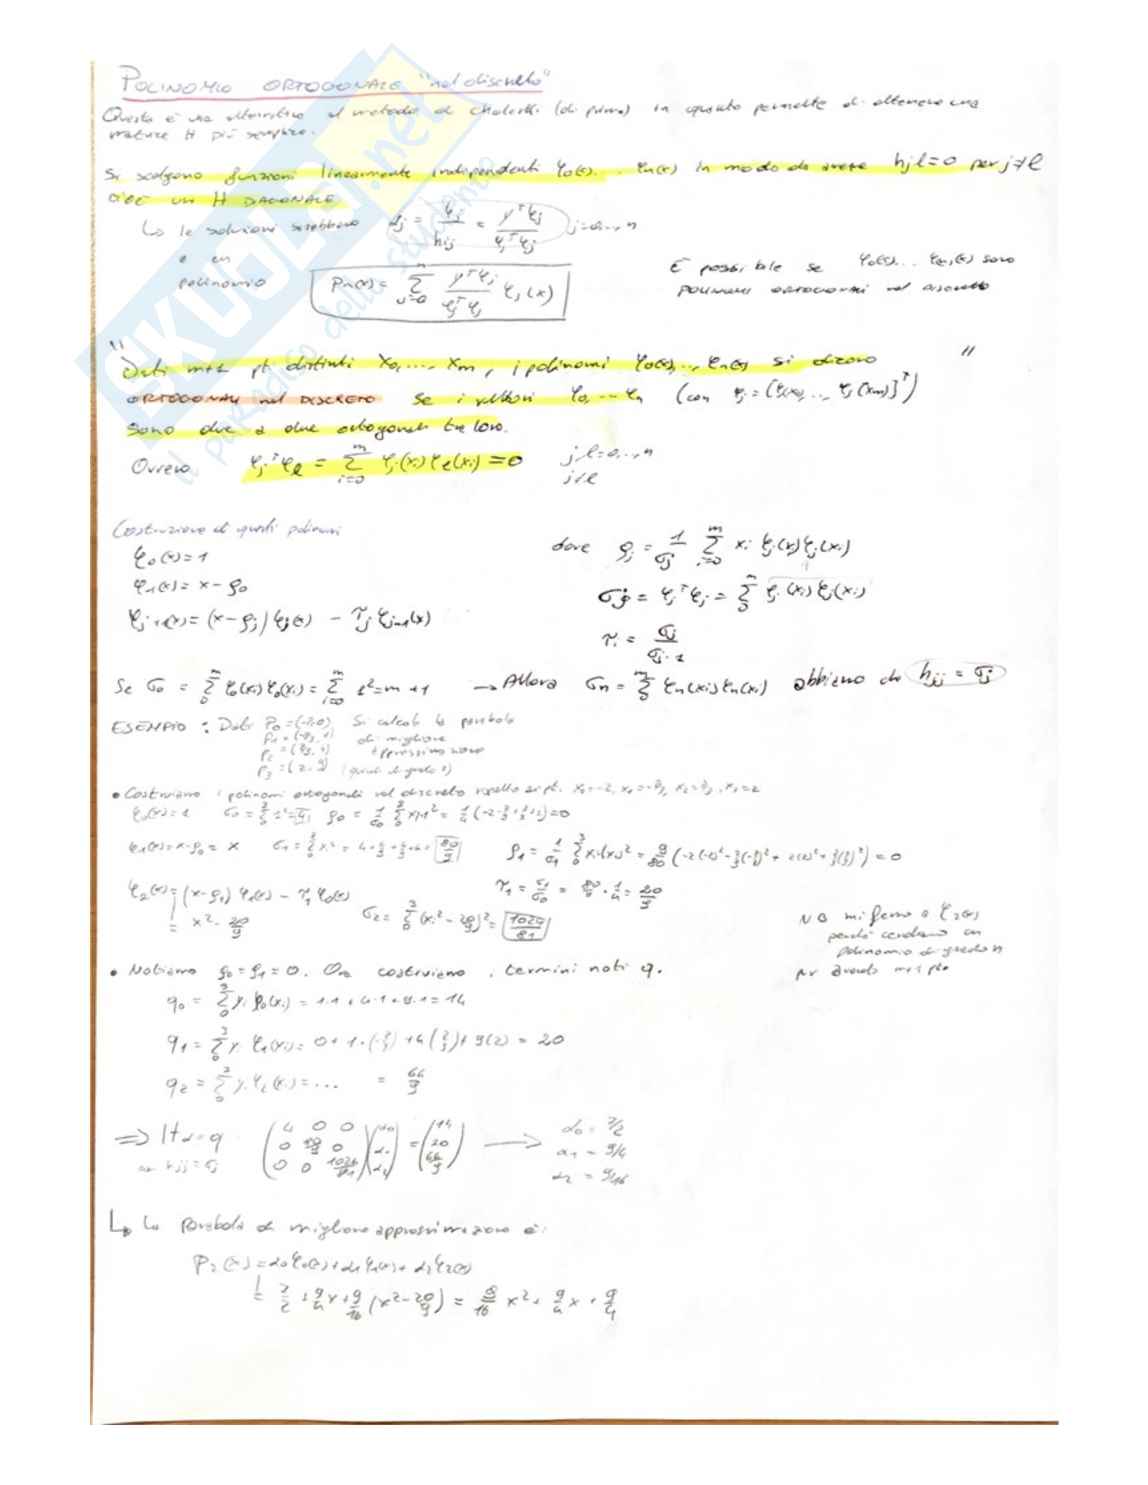 POLINOMIO ORTOGONALE "nel discreto"
Questo è una alternativa al metodo di (di prima) in quanto permette di ottenere una
matrice H più semplice.
Si scelgono funzioni linearmente indipendenti φ₀(x)... φn(x) in modo da avere hjl=0 per j≠l
cioè un H DIAGONALE
↳ le soluzioni sarebbero αj = qj/hjj = yᵀφj/φjᵀφj j=0,...,n
e un
polinomio Pn(x) = Σ_{j=0}^{n} yᵀφj/φjᵀφj φj(x)
È possibile se φ₀(x)... φn(x) sono
POLINOMI ORTOGONALI nel discreto
" Dati m+1 pt distinti x₀,..., xm, i polinomi φ₀(x),..,φn(x) si dicono "
ORTOGONALI nel DISCRETO se i vettori φ₀,...φn (con φj = [φj(x₀),..., φj(xm)]ᵀ)
sono due a due ortogonali tra loro.
Ovvero φjᵀφl = Σ_{i=0}^{m} φj(xi)φl(xi) = 0 j,l=0,..,n
j≠l
Costruzione di questi polinomi
φ₀(x)=1
φ₁(x)= x-ρ₀
φj+1(x)= (x-ρj)φj(x) - τj φj-1(x)
dove ρj = 1/σj Σ_{i=0}^{m} xi φj(xi)φj(xi)
σj = φjᵀφj = Σ_{0}^{m} φj(xi)φj(xi)
τj = σj/σj-1
Se σ₀ = Σ_{0}^{m} φ₀(xi)φ₀(xi) = Σ_{i=0}^{m} 1²=m+1 → Allora σn = Σ_{0}^{m} φn(xi)φn(xi) abbiamo che hjj = σj
ESEMPIO : Dati P₀=(-2,0) Si calcoli la parabola
P₁=(-2/3, 1) di migliore
P₂=(2/3, 4) approssimazione
P₃=(2, 9) (quindi di grado 2)
• Costruiamo i polinomi ortogonali nel discreto rispetto ai pt. x₀=-2, x₁=-2/3, x₂=2/3, x₃=2
φ₀(x)=1 σ₀=Σ_{0}^{3} 1²=4 ρ₀ = 1/σ₀ Σ_{0}^{3} xi·1² = 1/4 (-2-2/3+2/3+2)=0
φ₁(x)=x-ρ₀ = x σ₁=Σ_{0}^{3} xi² = 4+4/9+4/9+4= 80/9 ρ₁ = 1/σ₁ Σ_{0}^{3} xi(xi)² = 9/80 (-2(-2)²-2/3(-2/3)²+ 2(2)²+2/3(2/3)²) = 0
φ₂(x)= (x-ρ₁) φ₁(x) - τ₁ φ₀(x) τ₁ = σ₁/σ₀ = 80/9 · 1/4 = 20/9
= x² - 20/9 σ₂ = Σ_{0}^{3} (xi²-20/9)² = 1024/81
NB mi fermo a φ₂(x)
perché cerchiamo un
polinomio di grado n
pur avendo m+1 pto
• Notiamo ρ₀=ρ₁=0. Ora costruiamo i termini noti q.
q₀ = Σ_{0}^{3} yi φ₀(xi) = 1·1+4·1+9·1=14
q₁ = Σ_{0}^{3} yi φ₁(xi) = 0+1·(-2/3)+4(2/3)+9(2) = 20
q₂ = Σ_{0}^{3} yi φ₂(xi) = ... = 64/9
⇒ Hα=q (4 0 0; 0 80/9 0; 0 0 1024/81)(α₀; α₁; α₂) = (14; 20; 64/9) → α₀ = 7/2
hjj=σj α₁ = 9/4
α₂ = 9/16
↳ La parabola di migliore approssimazione è:
P₂(x) = α₀φ₀(x)+α₁φ₁(x)+α₂φ₂(x)
= 7/2 + 9/4 x + 9/16 (x²-20/9) = 9/16 x² + 9/4 x + 9/4
SKUOLA.net
il paradiso dello studente